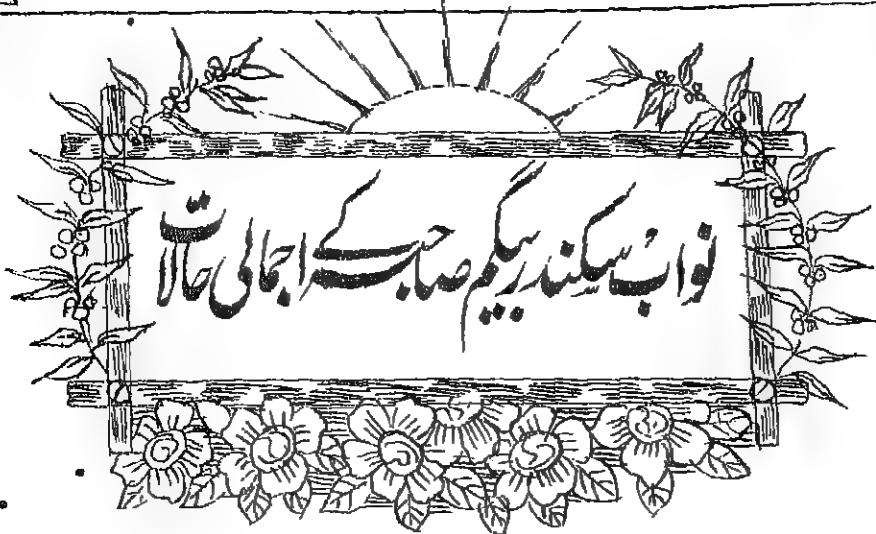 نواب سکندر بیگم صاحبہ کے اجمالی حالات